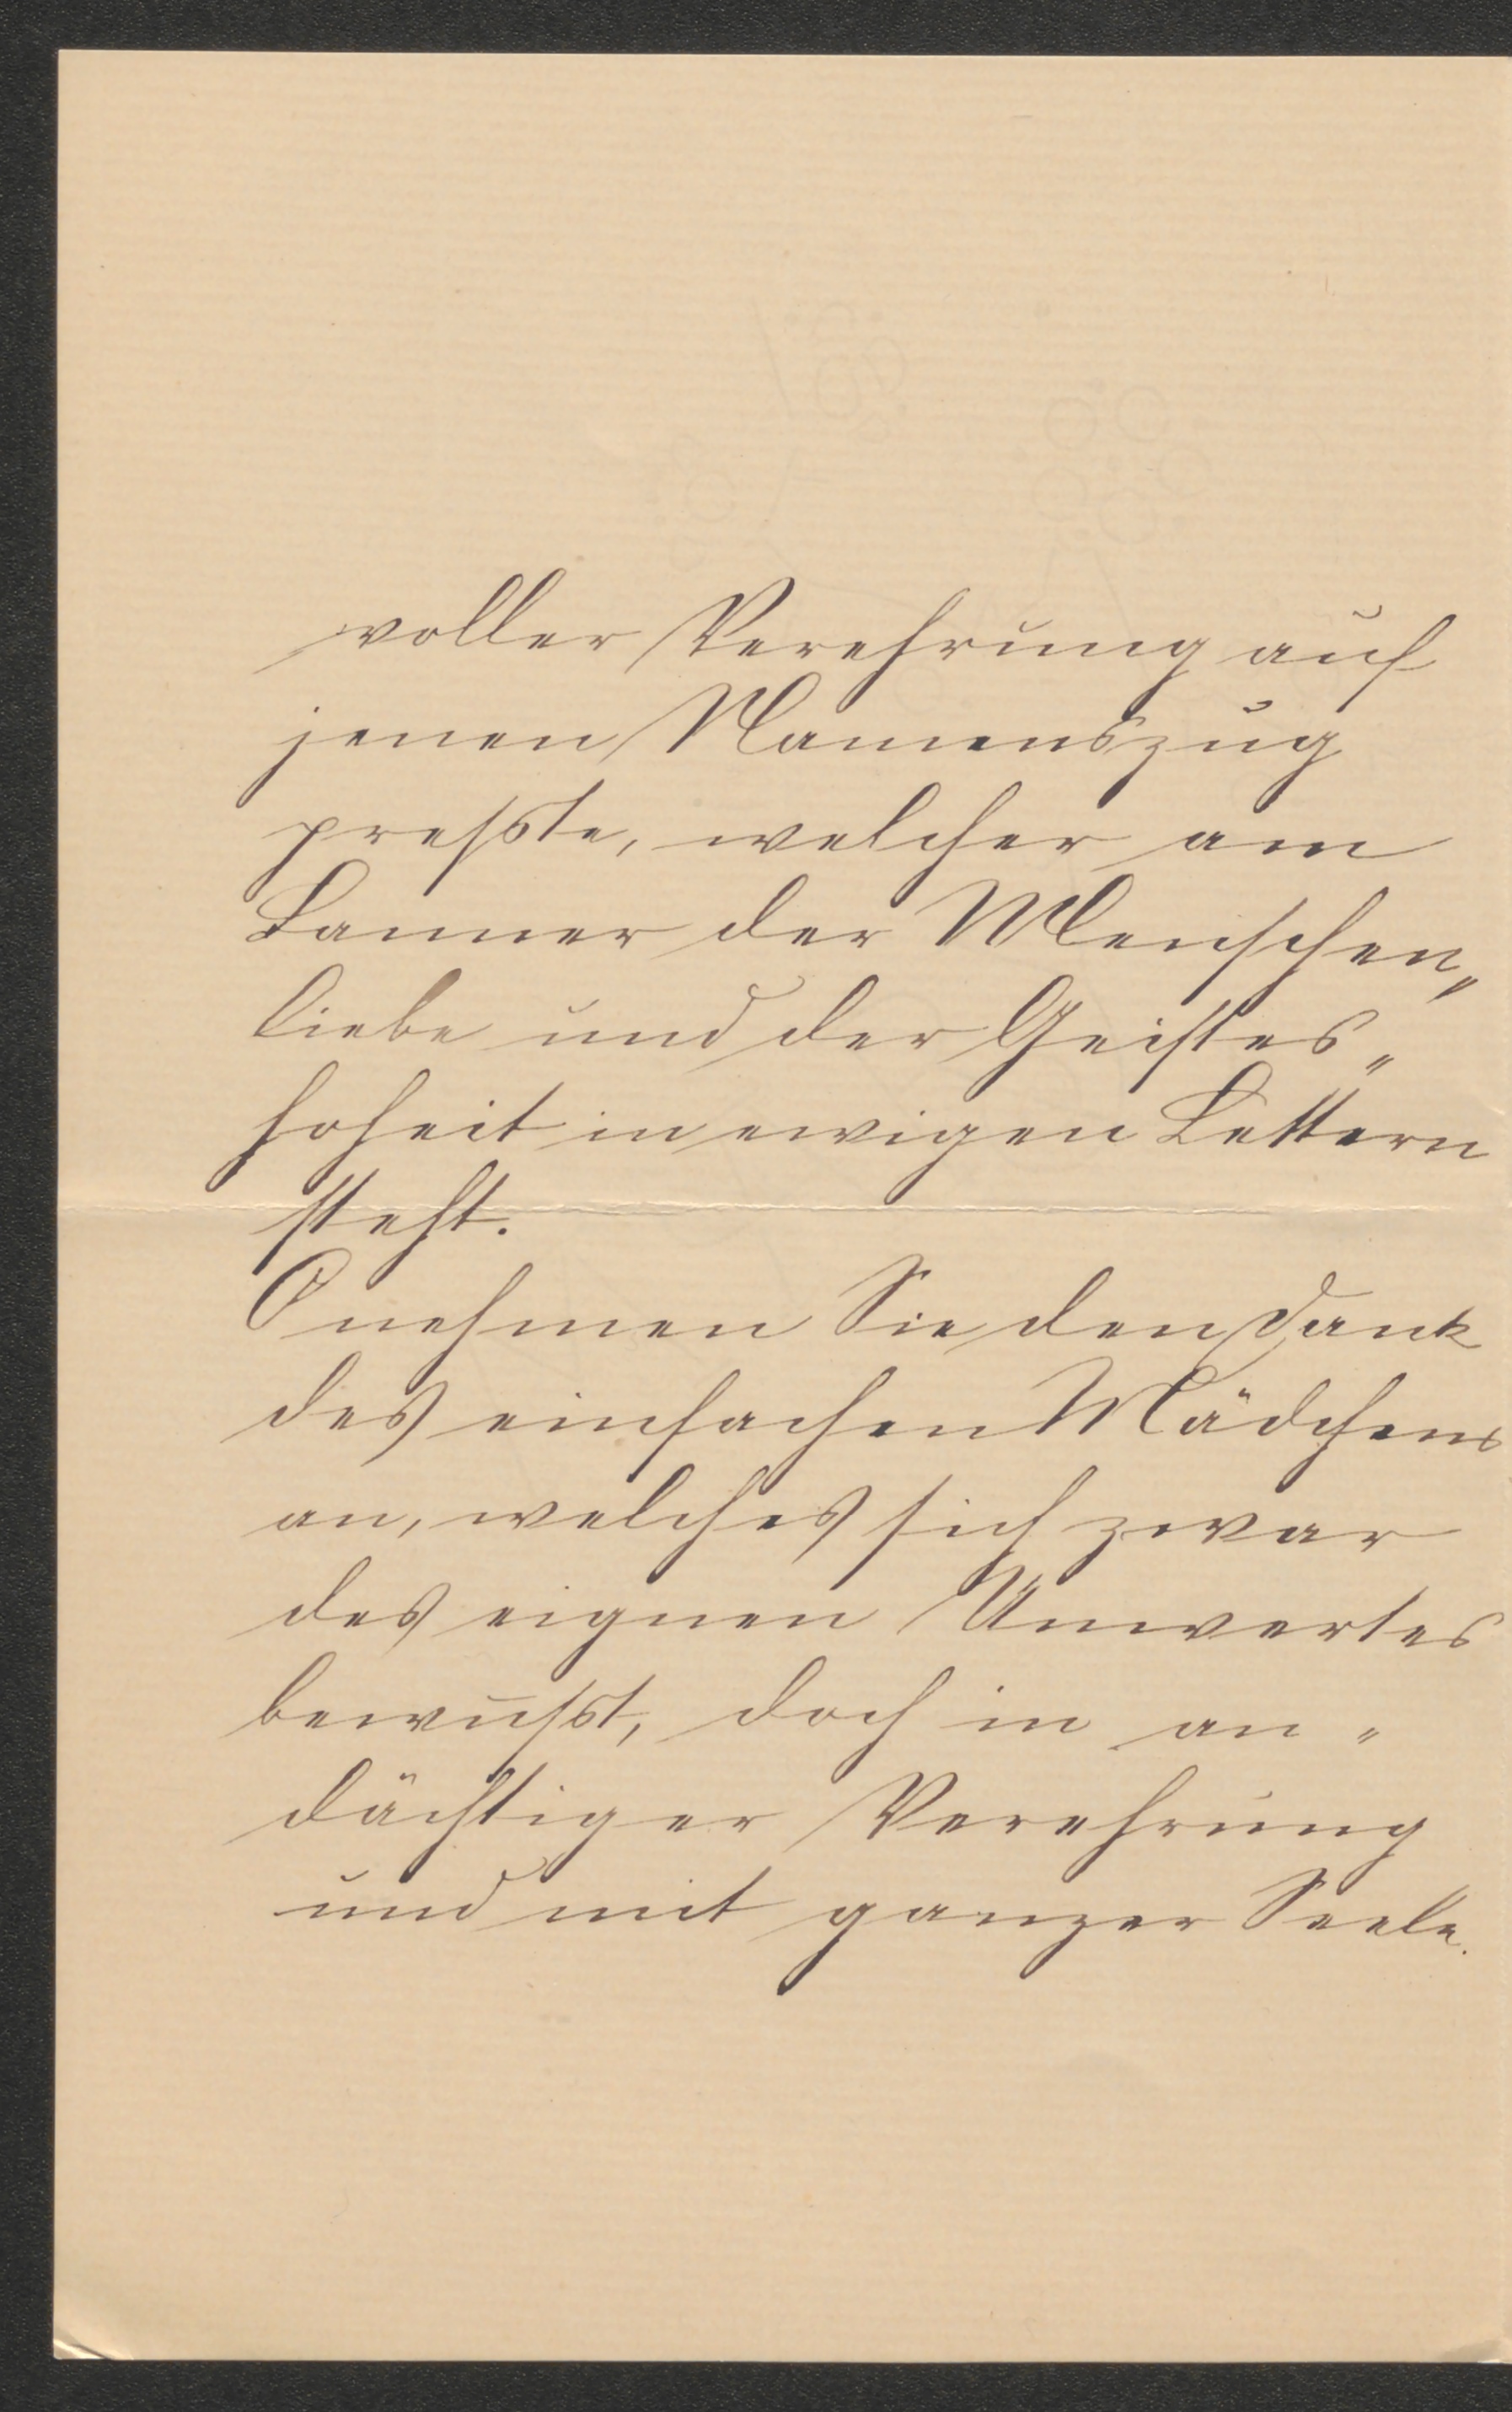 voller Verehrung auf
jenen Namenszug
preßte, welcher am
Banner der Menschen„
liebe und der Geistes„
hoheit in ewigen Lettern
steht.
O nehmen Sie den Dank
des einfachen Mädchens
an, welches sich zwar
des eignen Unwertes
bewußt, doch in an„
dächtiger Verehrung
und mit ganzer Seele.